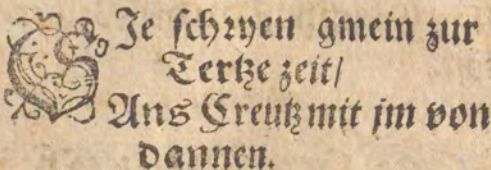 SIe schryen gmein zur
Tertze zeit/
Ans Creutz mit jm von
dannen.